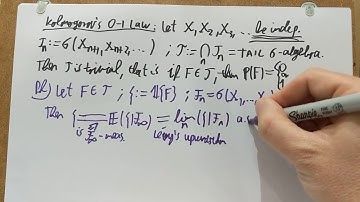 Kolmogorov's 0-1 Law: Let X₁, X₂, X₃, ... be indep.
𝒯ₙ := σ(Xₙ₊₁, Xₙ₊₂, ...) ; 𝒯 := ⋂ₙ 𝒯ₙ = TAIL σ-algebra.
Then 𝒯 is trivial, that is if F ∈ 𝒯, then P(F) = {0 or 1
Pf) Let F ∈ 𝒯 ; ξ := 𝟙(F) ; ℱₙ = σ(X₁, ... Xₙ)
Then ξ = 𝔼(ξ|ℱ∞) = limₙ (ξ|ℱₙ) a.s
is ℱ∞-meas. Levy's upward thm
Sharpie